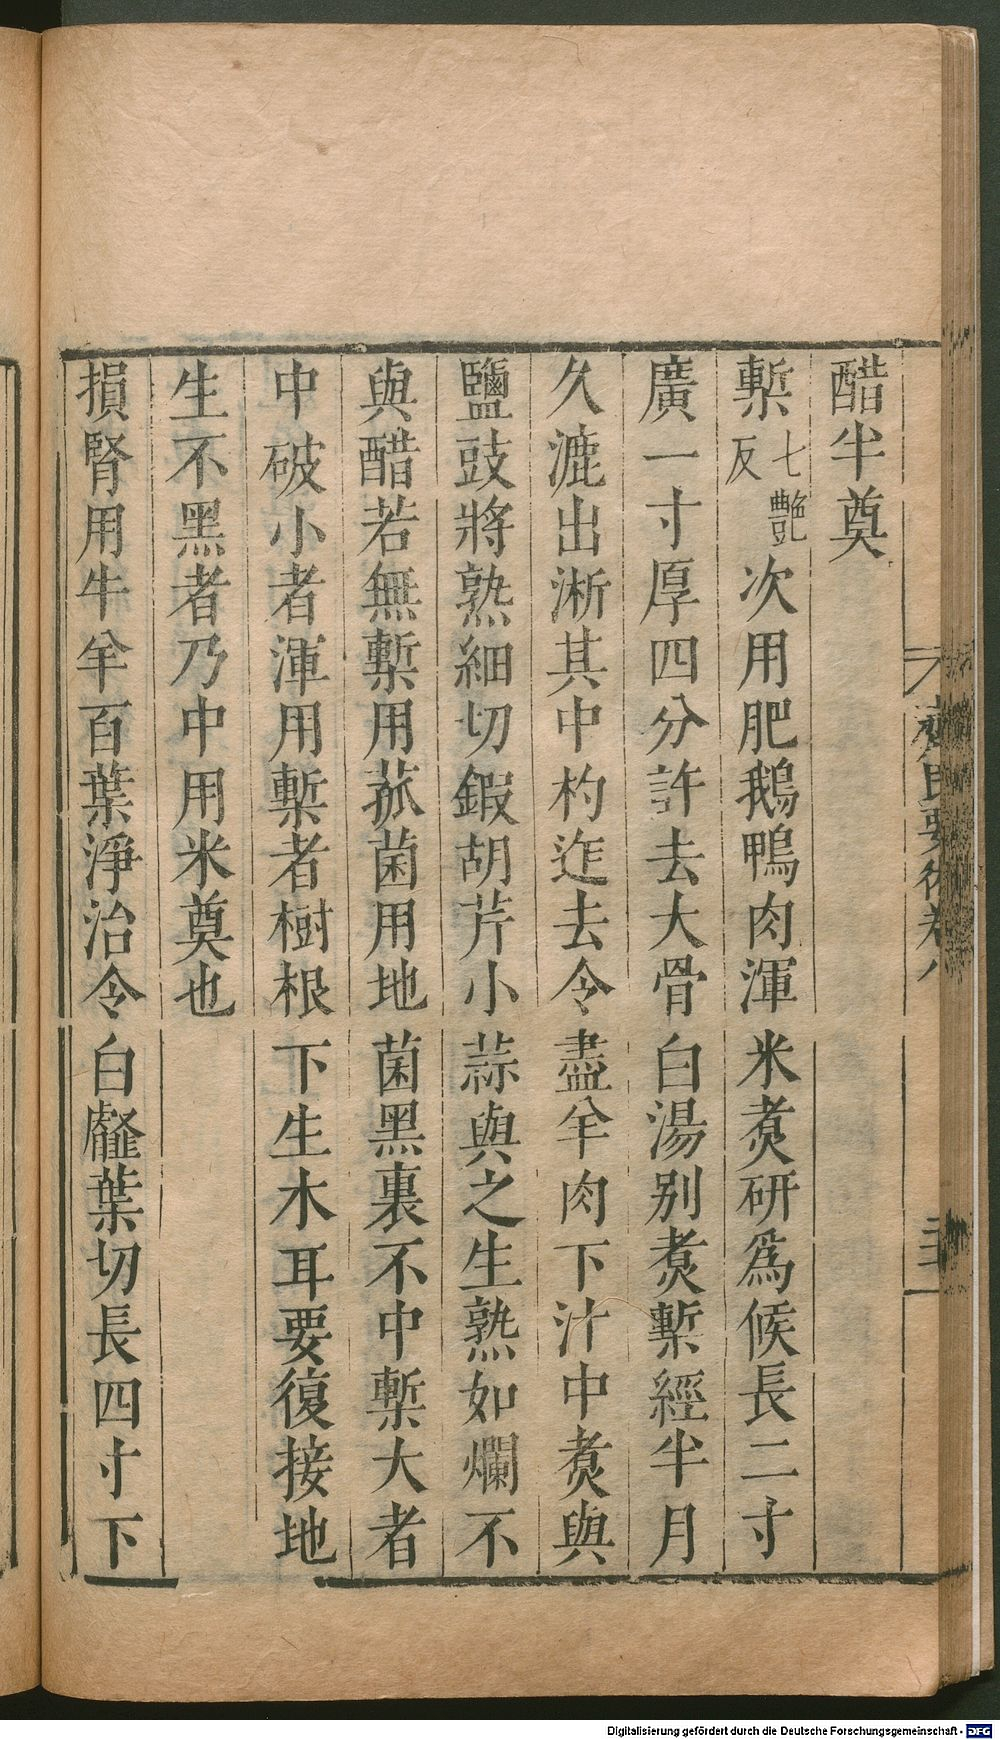 醋半奠
槧七艷反次用肥鵝鴨肉渾米煑研爲候長二寸
廣一寸厚四分許去大骨白湯別煑槧經半月
久漉出淅其中杓迮去令盡羊肉下汁中煑與
鹽豉將熟細切鍜胡芹小蒜與之生熟如爛不
與醋若無槧用菰菌用地菌黑裏不中槧大者
中破小者渾用槧者樹根下生木耳要復接地
生不黑者乃中用米奠也
損腎用牛羊百葉淨治令白䪥葉切長四寸下
齊民要術卷八
Digitalisierung gefördert durch die Deutsche Forschungsgemeinschaft - DFG